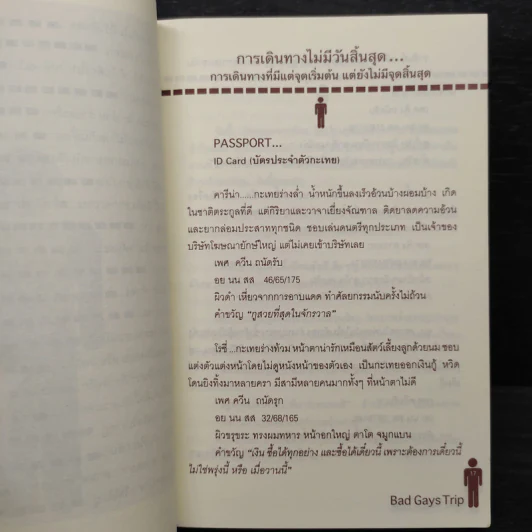 การเดินทางไม่มีวันสิ้นสุด...
การเดินทางที่มีแต่จุดเริ่มต้น แต่ยังไม่มีจุดสิ้นสุด
PASSPORT...
ID Card (บัตรประจำตัวกะเทย)
คารีน่า......กะเทยร่างล่ำ น้ำหนักขึ้นลงเร็วอ้วนบ้างผอมบ้าง เกิด
ในชาติตระกูลที่ดี แต่กิริยาและวาจาเยี่ยงจัณฑาล ติดยาลดความอ้วน
และยากล่อมประสาททุกชนิด ชอบเล่นดนตรีทุกประเภท เป็นเจ้าของ
บริษัทโฆษณายักษ์ใหญ่ แต่ไม่เคยเข้าบริษัทเลย
เพศ ควีน ถนัดรับ
อย นน สส 46/65/175
ผิวดำ เหี่ยวจากการอาบแดด ทำศัลยกรรมนับครั้งไม่ถ้วน
คำขวัญ "กูสวยที่สุดในจักรวาล"
โรซี่ ...กะเทยร่างท้วม หน้าตาน่ารักเหมือนสัตว์เลี้ยงลูกด้วยนม ชอบ
แต่งตัวแต่งหน้าโดยไม่ดูหนังหน้าของตัวเอง เป็นกะเทยออกเงินกู้ หวิด
โดนยิงทิ้งมาหลายครา มีสามีหลายคนมากทั้งๆ ที่หน้าตาไม่ดี
เพศ ควีน ถนัดรุก
อย นน สส 32/68/165
ผิวขรุขระ ทรงผมทหาร หน้าอกใหญ่ ตาโต จมูกแบน
คำขวัญ "เงิน ซื้อได้ทุกอย่าง และซื้อได้เดี๋ยวนี้ เพราะต้องการเดี๋ยวนี้
ไม่ใช่พรุ่งนี้ หรือ เมื่อวานนี้"
17
Bad Gays Trip